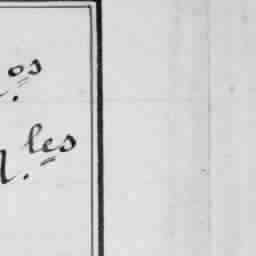 os
les